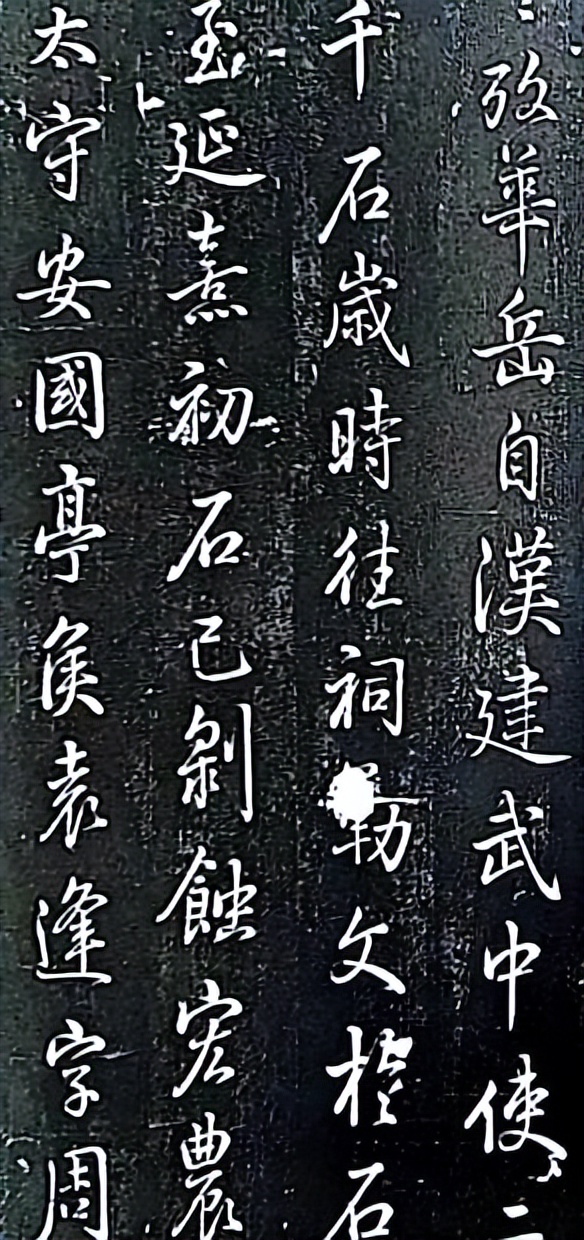 攷華岳自漢建武中使二
千石歳時往祠勒文於石
至延熹初石已剝蝕宏農
太守安國亭矦袁逢字周